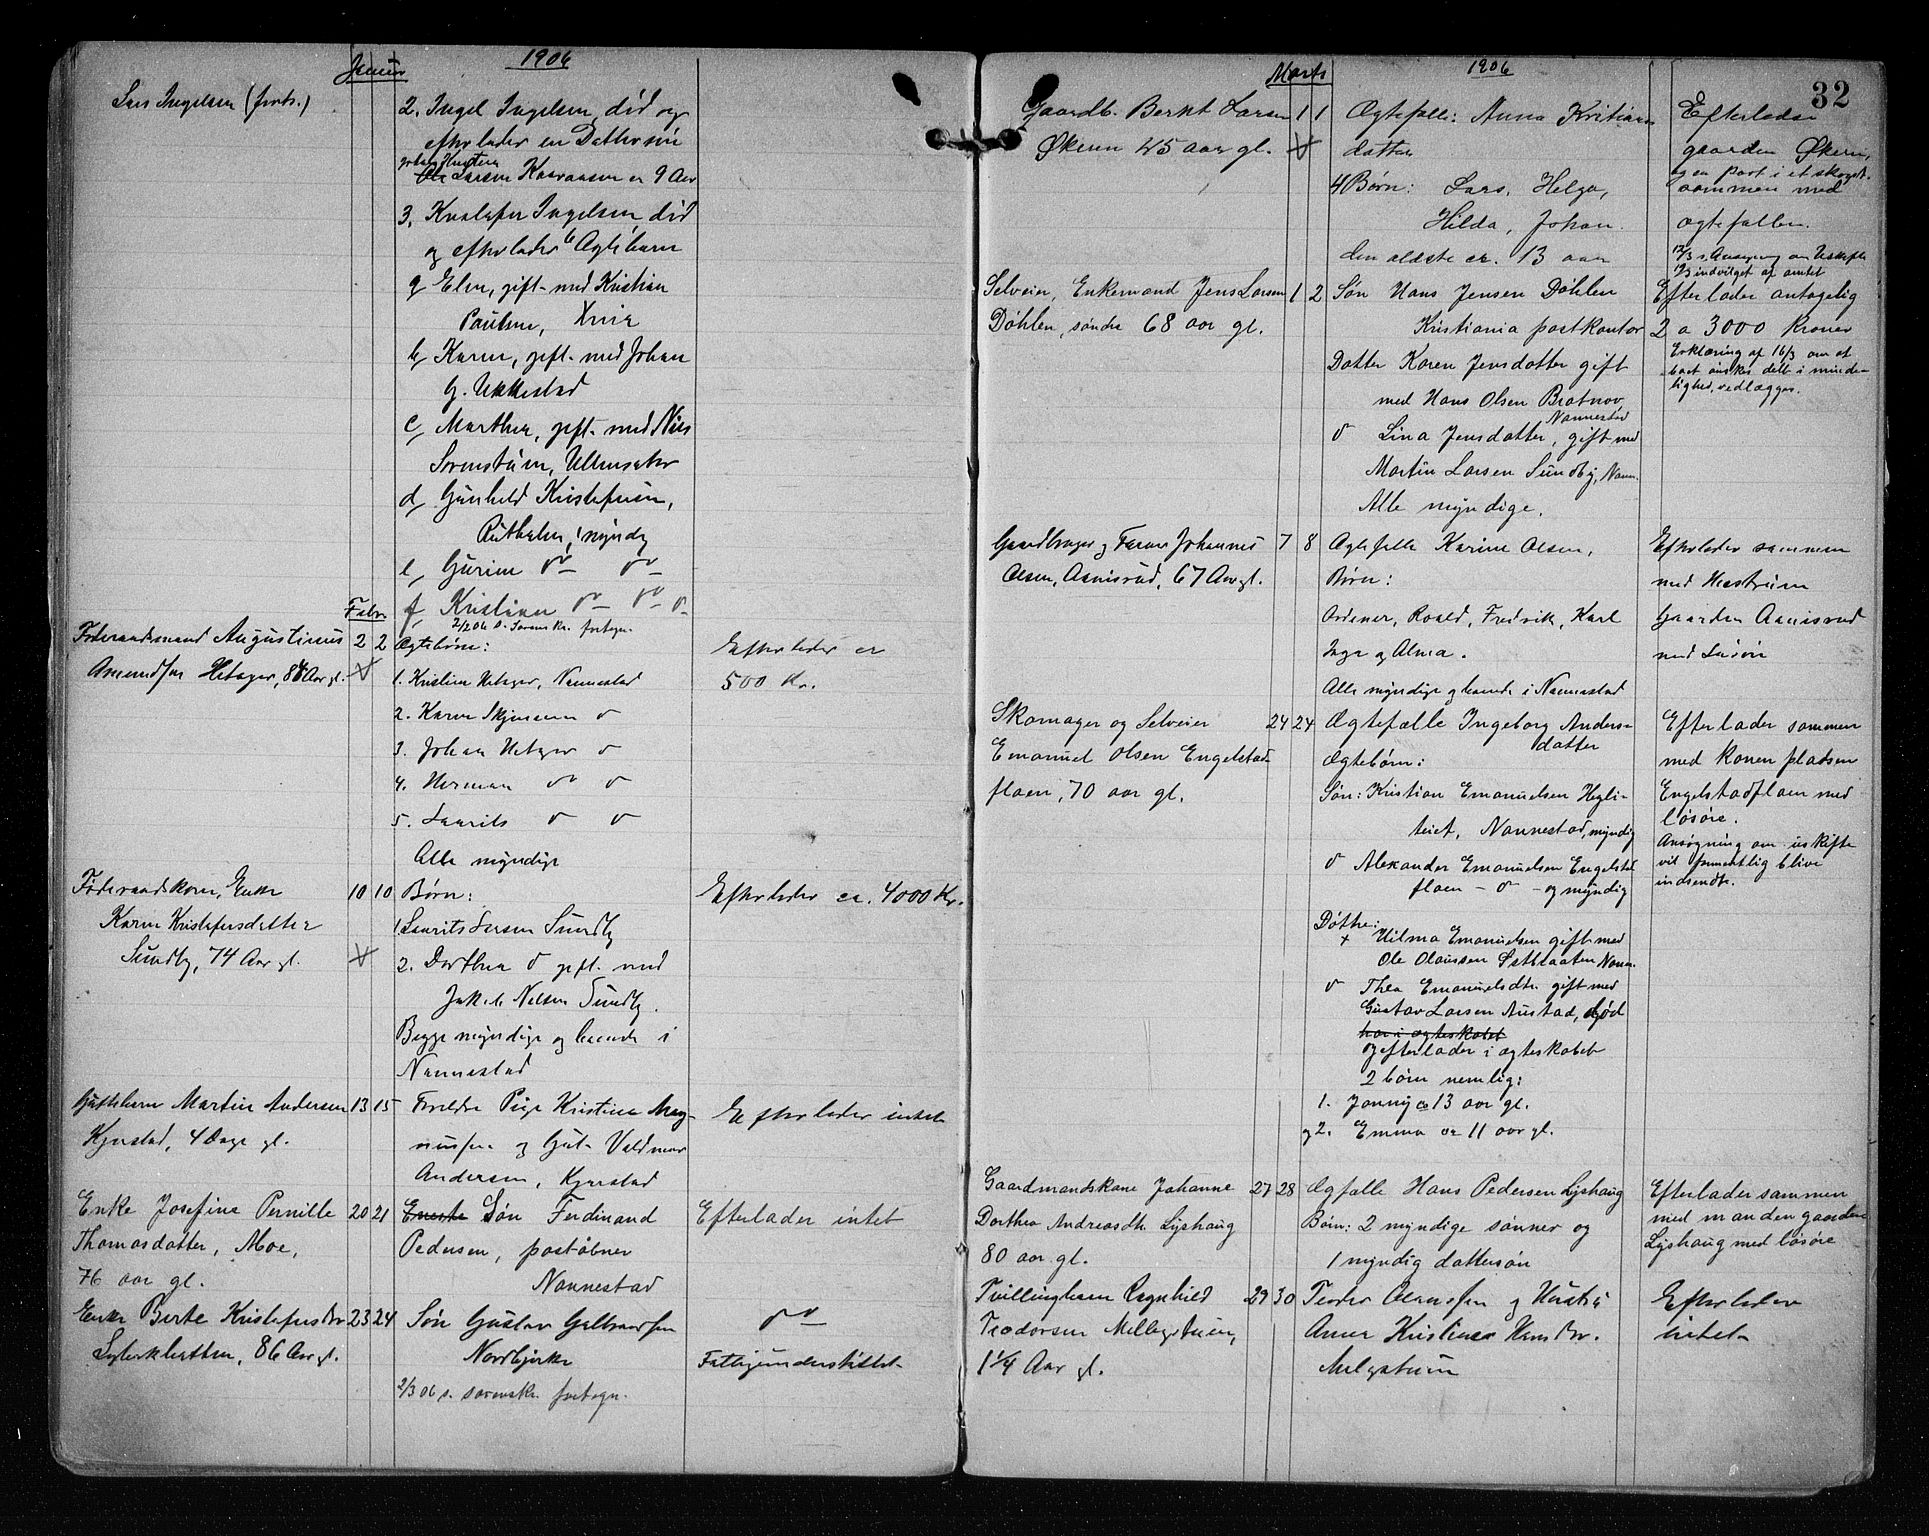 1906
Januar
Lars Ingelsen (forts.)
2. Ingel Ingelsen, död og
efterlader en Dattersön
9 Aar
3. Kristofer Ingelsen död
og efterlader 6 Ægtebarn
a, Elen, gift med Kristian
Paulsen, Xnia
b, Karen, gift med Johan
G. Ukkestad
c, Marthea, gift med Nils
Ullensaker
d, Gunhild Kristofersen,
myndig
e, Gurine do do
f, Kristian do do
2/2 06 s. Sorenskr. foretegn.
Febr
Föderaadsmand Augustinus
Amundsen Hetager, 86 Aar gl.
2 2
Ægtebörn:
1. Kristian Hetager, Nannestad
2. Karen Skjennum do
3. Johan Hetager do
4. Herman do do
5. Laurits do do
Alle myndige
Efterlader ca
500 Kr.
Föderaadskone, Enke
Karen Kristofersdatter
Sundby, 74 Aar gl.
10 10
Børn:
1. Laurits Larsen Sundby
2. Dorthea do gift med
Jakob Nilsen Sundby.
Begge myndige og boende i
Nannestad
Efterlader ca. 4000 Kr.
Guttebarn Martin Andersen
Kjerstad, 4 Dage gl.
13 15
Foreldre Pige Kristine Mag-
nussen og Gut Valdmar
Andersen, Kjerstad
Efterlader intet
Enke Josefine Pernille
Thomasdatter, Moe,
76 aar gl.
20 21
Eneste Søn Ferdinand
Pedersen, postaabner
Nannestad
Efterlader intet
Enke Berte Kristofersdtr
86 Aar gl.
23 24
Søn Gustav Gulbrandsen
Nordbjerke
2/3 06 s. sorenskr. foretegn.
do
Fattigunderstöttet
32
1906
Marts
Gaardb. Bernt Larsen
Økern 45 aar gl.
1 1
Ægtefælle: Anna Kristians
datter
4 Børn: Lars, Helga,
Hilda, Johan.
den ældste er 13 aar
Efterladse
gaarden Økern,
og en part i et skogst.
sammen med
ægtefællen.
13/3 s. Ansøgning om Uskifte
indvilget af amtet
Selveier, Enkemand Jens Larsen
Døhlen, søndre 68 aar gl.
1 2
Søn Hans Jensen Døhlen
Kristiania postkontor
Datter Karen Jensdatter gift
med Hans Olsen Bratnov
Nannestad
do Lina Jensdatter, gift med
Martin Larsen Sundby, Nann.
Alle myndige.
Efterlader antagelig
2 a 3000 Kroner
Erklæring af 16/3 om at
boet önskes delt i minde-
lighed, vedlægges.
Gaardbruger og Johannes
Olsen, Aamisrud, 67 Aar gl.
7 8
Ægtefelle Karine Olsen,
Børn:
Ardener, Roald, Fredrik, Karl
Inga og Alma.
Alle myndige og boende i Nannestad
Efterlader sammen
med Hustruen
Gaarden Aamisrud
med Lösöre
Skomager og Selveier
Emanuel Olsen Engelstad-
flaen, 70 aar gl.
24 24
Ægtefælle Ingeborg Anders-
datter
Ægtebørn:
Søn: Kristian Emanuelsen Hegli-
teiet, Nannestad, myndig
do Alexander Emanuelsen Engelstad
flaen – do – og myndig
Døttre:
x Hilma Emanuelsen gift med
Ole Olaussen Nann.
do Thea Emanuelsdtr. gift med
Gustav Larsen Austad, død
har i ægteskabet
og efterlader i ægteskabet
2 børn nemlig:
1. Jonny ca 13 aar gl.
og 2. Emma ca 11 aar gl.
Efterlader sammen
med konen pladsen
Engelstadflaen med
løsøre.
Ansøgning om uskifte
vil formentlig blive
indsendt.
Gaardmandskone Johanne
Dorthea Andreasdtr. Lyshaug
80 aar gl.
27 28
Ægfælle Hans Pedersen Lyshaug
Børn: 2 myndige sønner og
1 myndig dattersøn
Efterlader sammen
med manden gaarden
Lyshaug med løsøre
Tvillingbarn Ragnhild
Teodorsen
1 1/4 Aar gl.
29 30
Teodor og Hustru
Anna Kristiane Hansdtr.
Efterlader
intet